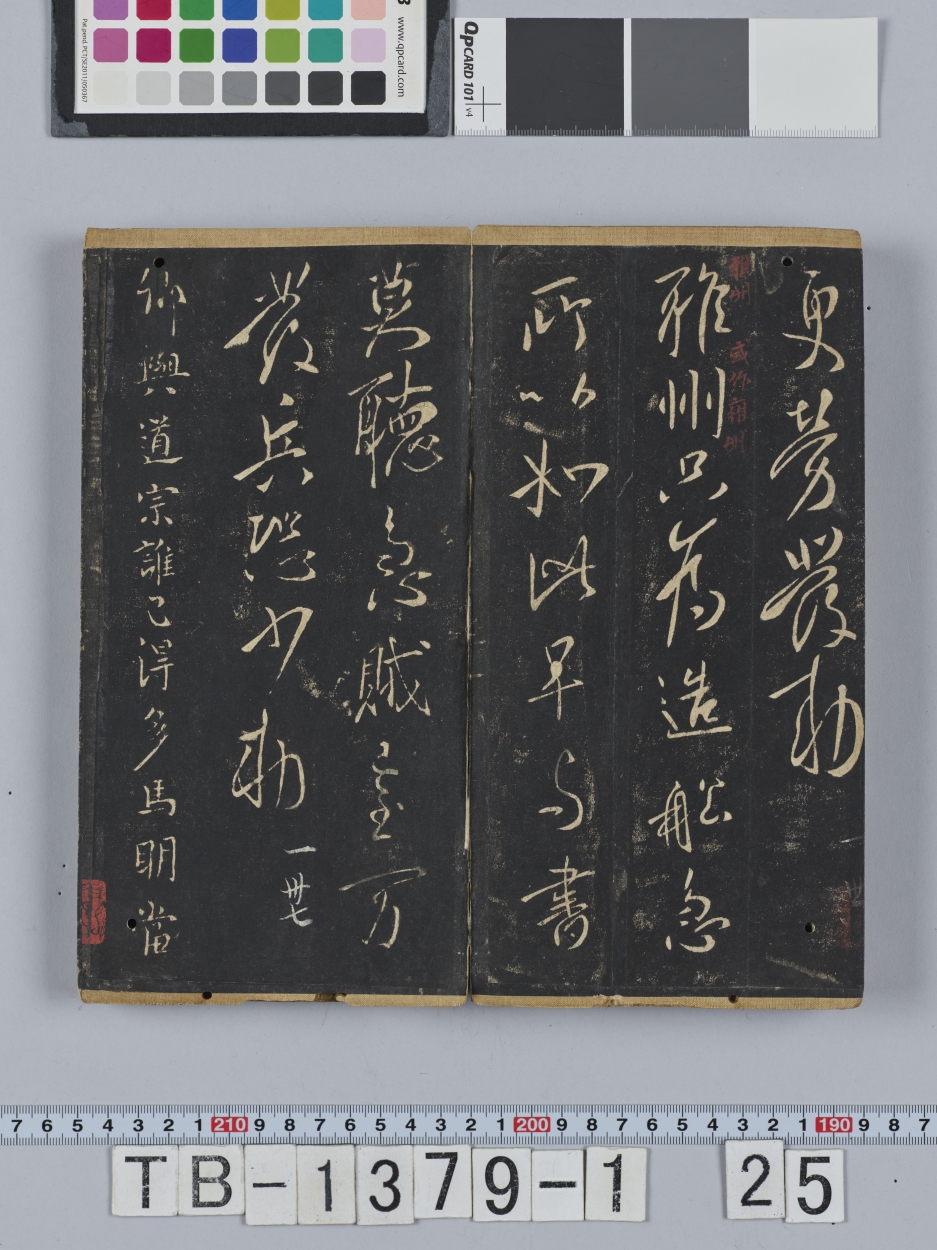 www.qpcard.com
Pat.pend. PCT/SE2011/050367
QPCARD 101 v4
更勞發勅
雅州 或作雍州
雅州只為造船急
所以如此早与書
莫聽急賊万
發兵恐少勅
一 卌七
卿與道宗誰已得多馬明當
7 6 5 4 3 2 1 210 9 8 7 6 5 4 3 2 1 200 9 8 7 6 5 4 3 2 1 190 9 8 7
TB-1379-1 25